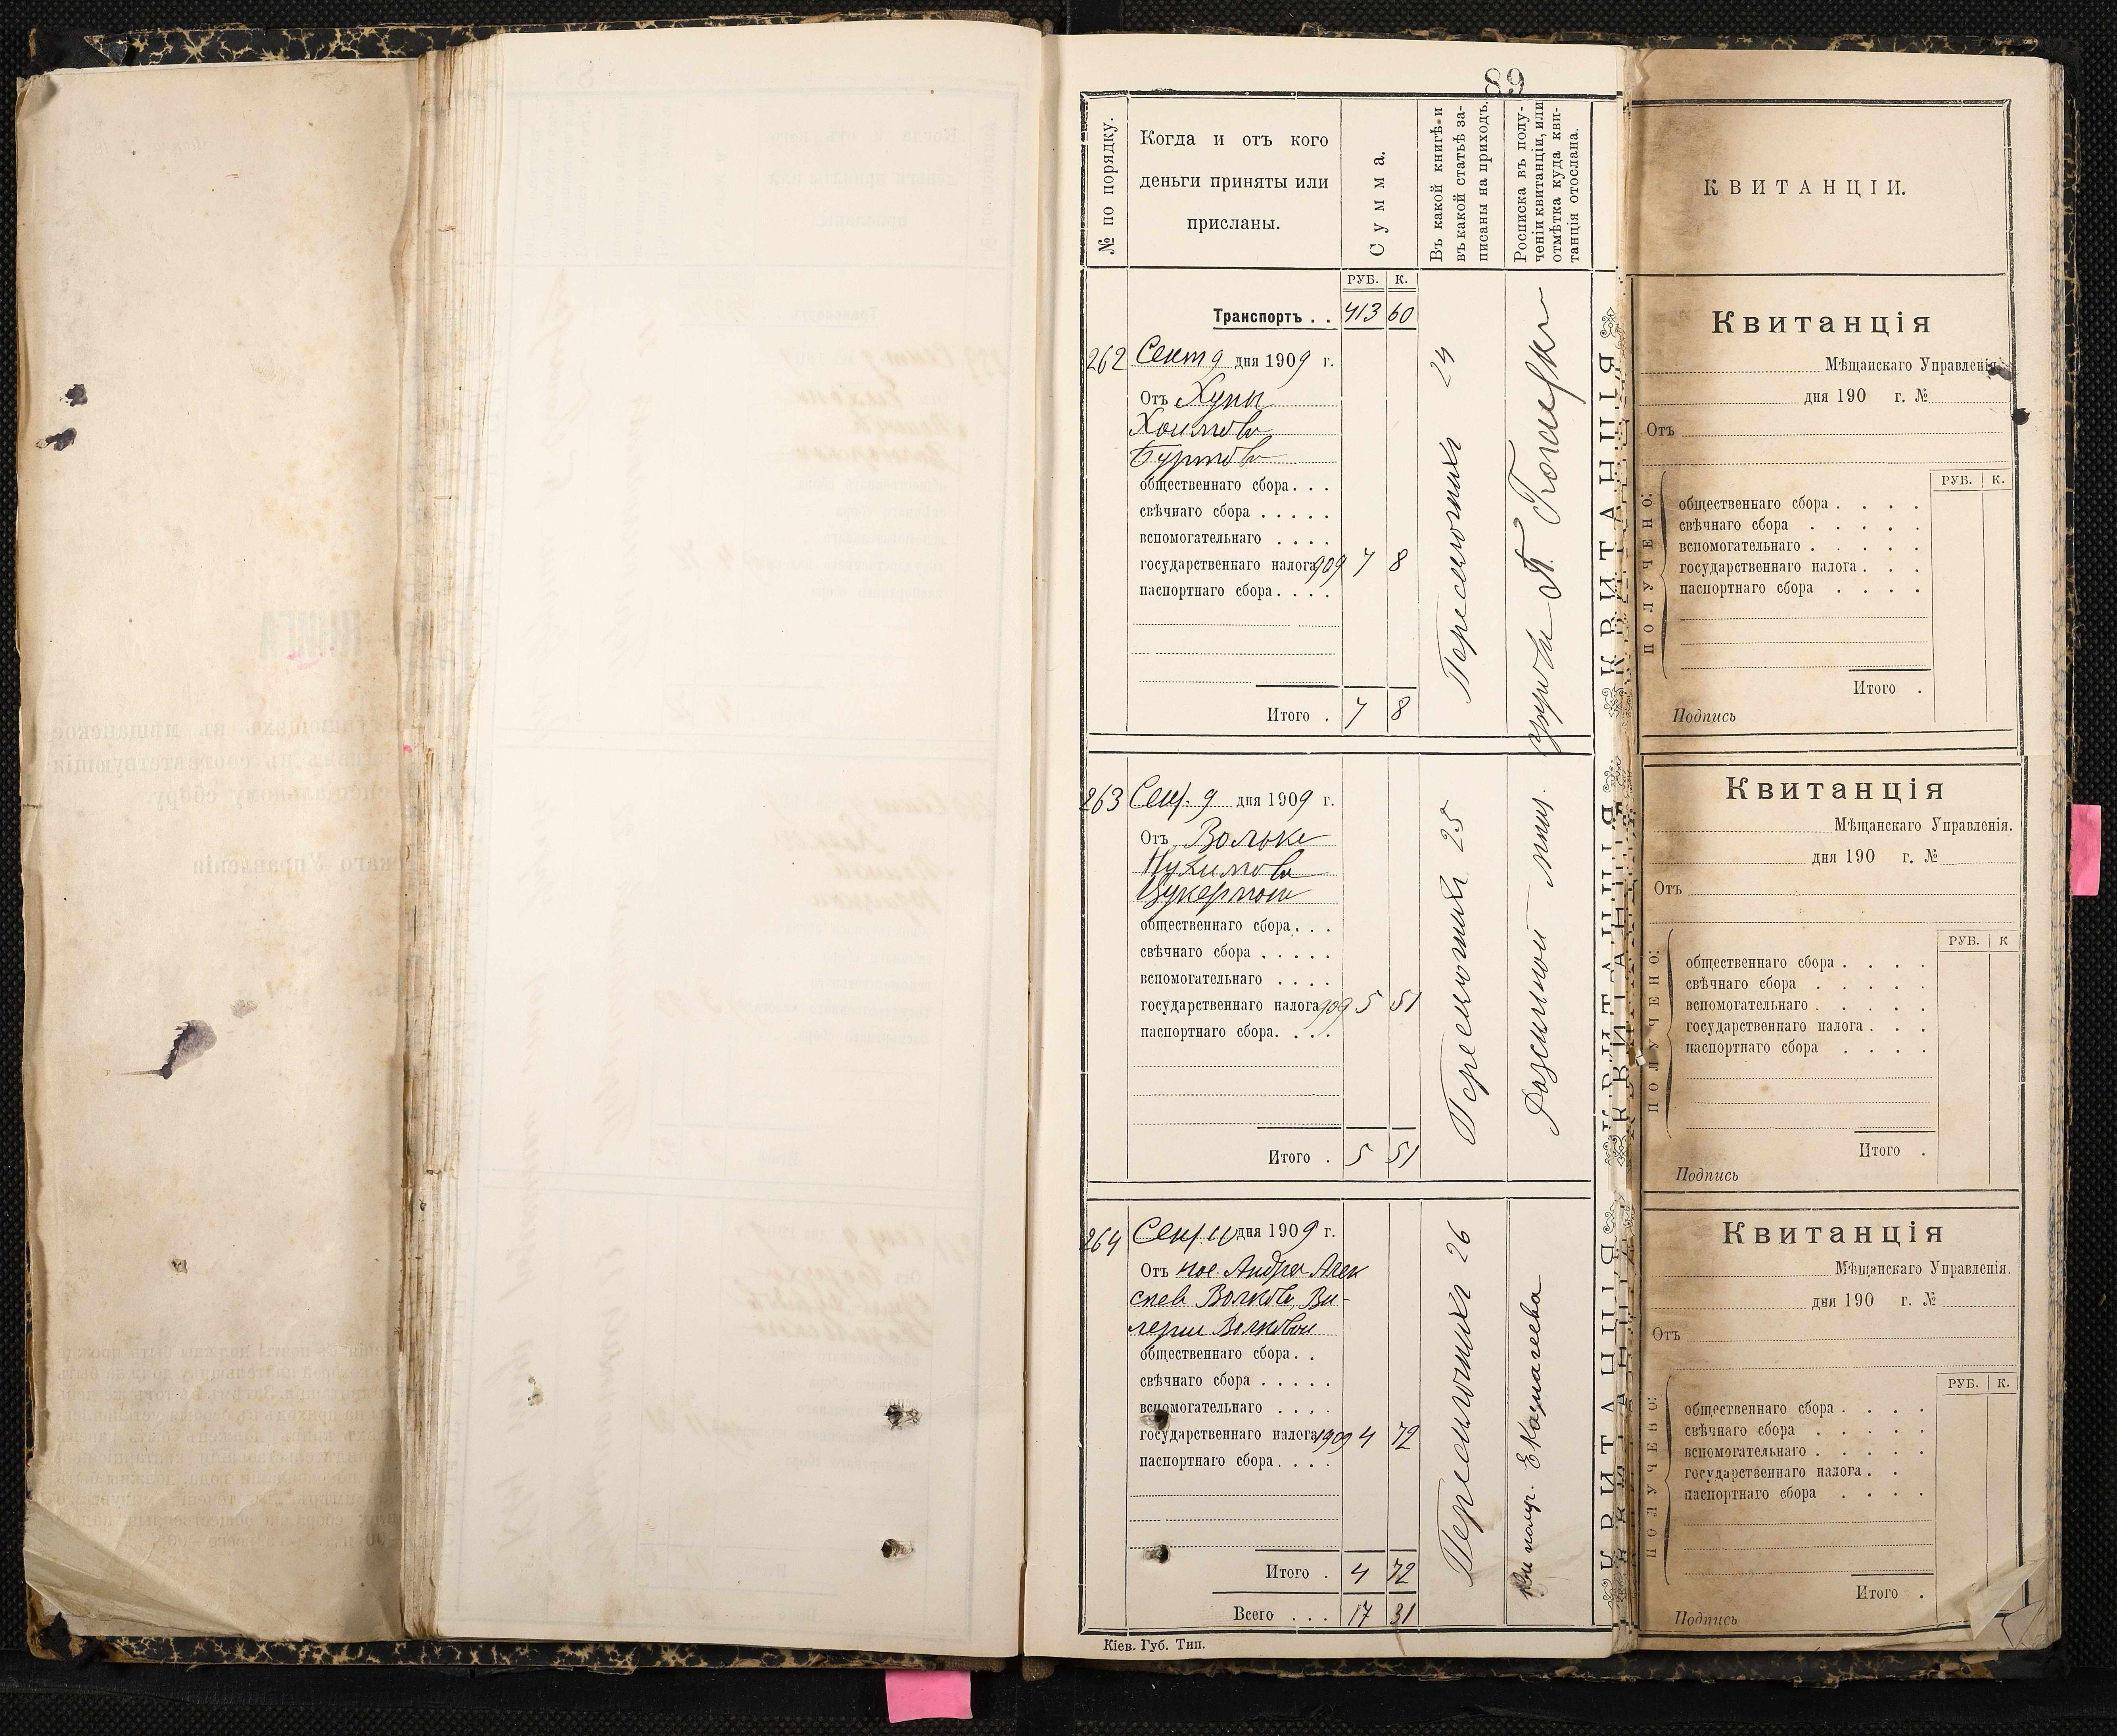 89
№ по порядку.
Когда и отъ кого
деньги приняты или
присланы.
Сумма.
Въ какой книгѣ и
въ какой статьѣ за-
писаны на приходъ.
Росписка въ полу-
ченіи квитанціи, или
отмѣтка куда кви-
танція отослана.
РУБ. К.
Транспортъ . . 413 60
262 Сент 9 дня 1909 г.
Отъ Хуны
Хаимова
общественнаго сбора. . .
свѣчнаго сбора . . . . .
вспомогательнаго . . . .
государственнаго налога 909 7 8
паспортнаго сбора. . . .
Итого . 7 8
24
263 Сент. 9 дня 1909 г.
Отъ Вольке
Нухимова
Цукерман
общественнаго сбора. . .
свѣчнаго сбора . . . . .
вспомогательнаго . . . .
государственнаго налога 909 5 51
паспортнаго сбора. . . .
Итого . 5 51
25
264 дня 1909 г.
Отъ Андрея Алек
сѣев Волкова, Ва-
лерии Волковой
общественнаго сбора. .
свѣчнаго сбора . . . . .
вспомогательнаго . . . .
государственнаго налога 1909 4 72
паспортнаго сбора. . . .
Итого . 4 72
Всего . . . 17 31
26
Кіев. Губ. Тип.
КВИТАНЦІЯ
КВИТАНЦІЯ
КВИТАНЦІЯ
КВИТАНЦІИ.
Квитанція
Мѣщанскаго Управленія.
дня 190 г. №
Отъ
РУБ. К.
ПОЛУЧЕНО:
общественнаго сбора . . . .
свѣчнаго сбора . . . . .
вспомогательнаго . . . . .
государственнаго налога . . .
паспортнаго сбора . . . .
Итого .
Подпись
Квитанція
Мѣщанскаго Управленія.
дня 190 г. №
Отъ
РУБ. К
ПОЛУЧЕНО:
общественнаго сбора . . . .
свѣчнаго сбора . . . . .
вспомогательнаго . . . . .
государственнаго налога . . .
паспортнаго сбора . . . .
Итого .
Подпись
Квитанція
Мѣщанскаго Управленія.
дня 190 г. №
Отъ
РУБ. К.
ПОЛУЧЕНО:
общественнаго сбора . . . .
свѣчнаго сбора . . . . .
вспомогательнаго . . . . .
государственнаго налога . .
паспортнаго сбора . . . .
Итого .
Подпись